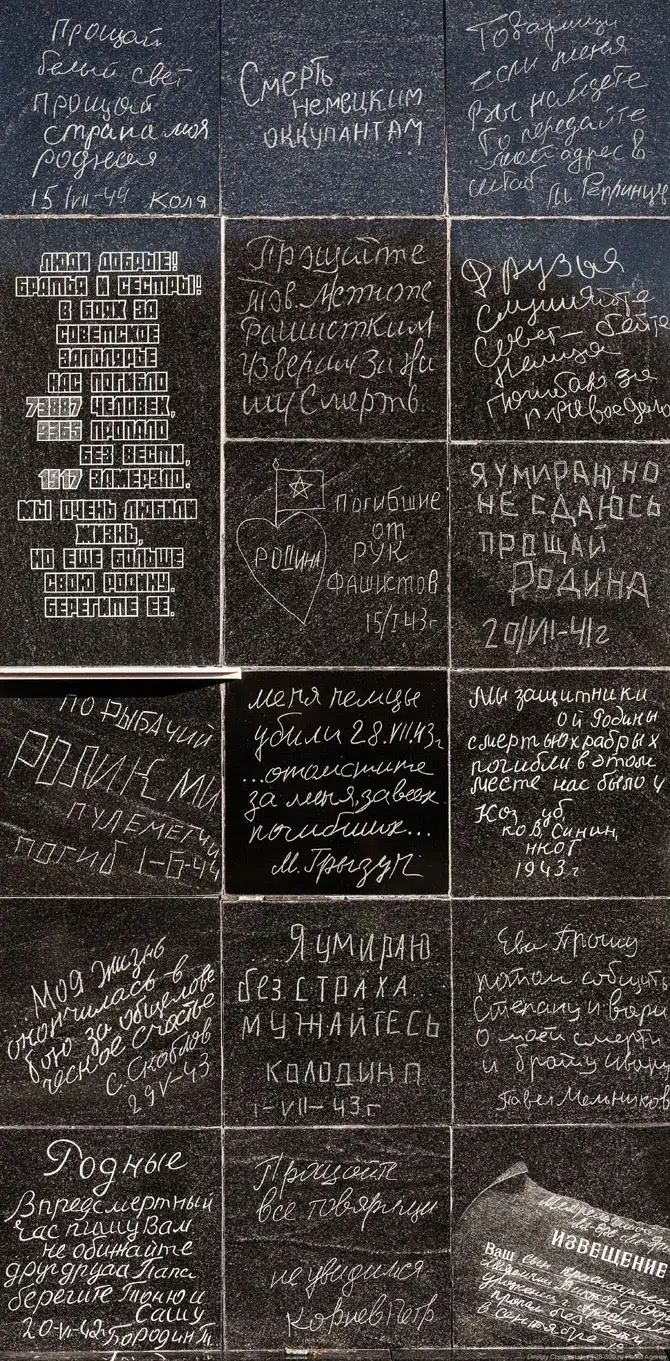 Прощай
белый свет
прощай
страна моя
родная
15/VII-44 Коля
Смерть
немецким
оккупантам
Товарищи
если меня
Вы найдете
То передайте
мой адрес в
штаб
ЛЮДИ ДОБРЫЕ!
БРАТЬЯ И СЕСТРЫ!
В БОЯХ ЗА
СОВЕТСКОЕ
ЗАПОЛЯРЬЕ
НАС ПОГИБЛО
73887 ЧЕЛОВЕК,
9365 ПРОПАЛО
БЕЗ ВЕСТИ,
1917 ЗАМЕРЗЛО.
МЫ ОЧЕНЬ ЛЮБИЛИ
ЖИЗНЬ,
НО ЕЩЕ БОЛЬШЕ
СВОЮ РОДИНУ.
БЕРЕГИТЕ ЕЕ.
Прощайте
тов. Мстите
Фашистким
Изверам За Ни
шу Смерть
Друзья
слушайте
Совет - бейте
Немца
Погибаю за
правое дело
РОДИНА
Погибшие
от
РУК
Фашистов
15/I 43г
Я УМИРАЮ, НО
НЕ СДАЮСЬ
ПРОЩАЙ
РОДИНА
20/VII-41г
ПО РЫБАЧИЙ
РОЛИК МИ
ПУЛЕМЕТЧИ
ПОГИБ
меня немцы
убили 28.VII.43г
...отомстите
за меня, за всех
погибших...
М. Грызун
Мы защитники
ой Родины
смертью храбрых
погибли в этом
месте нас было 4
Коз уб,
ков, Синин,
1943г
Моя жизнь
окончилась в
бою за общелове
ческое счастье
С. Скоблов
29 V-43
...Я УМИРАЮ
без СТРАХА...
МУЖАЙТЕСЬ
КОЛОДИН П
1-VII-43г
Ева Прошу
потом сообщить
Степану и Вари
О моей смерти
и брату Ивану
Павел Мельников
Родные
В предсмертный
час пишу Вам
не обижайте
друг друга Папа
берегите Тоню и
Сашу
20-VI-42г. Бородин Т.
Прощайте
все товарищи
не увидимся
Корнев Петр
ИЗВЕЩЕНИЕ
Ваш сын
пропал без вести
в сентябре